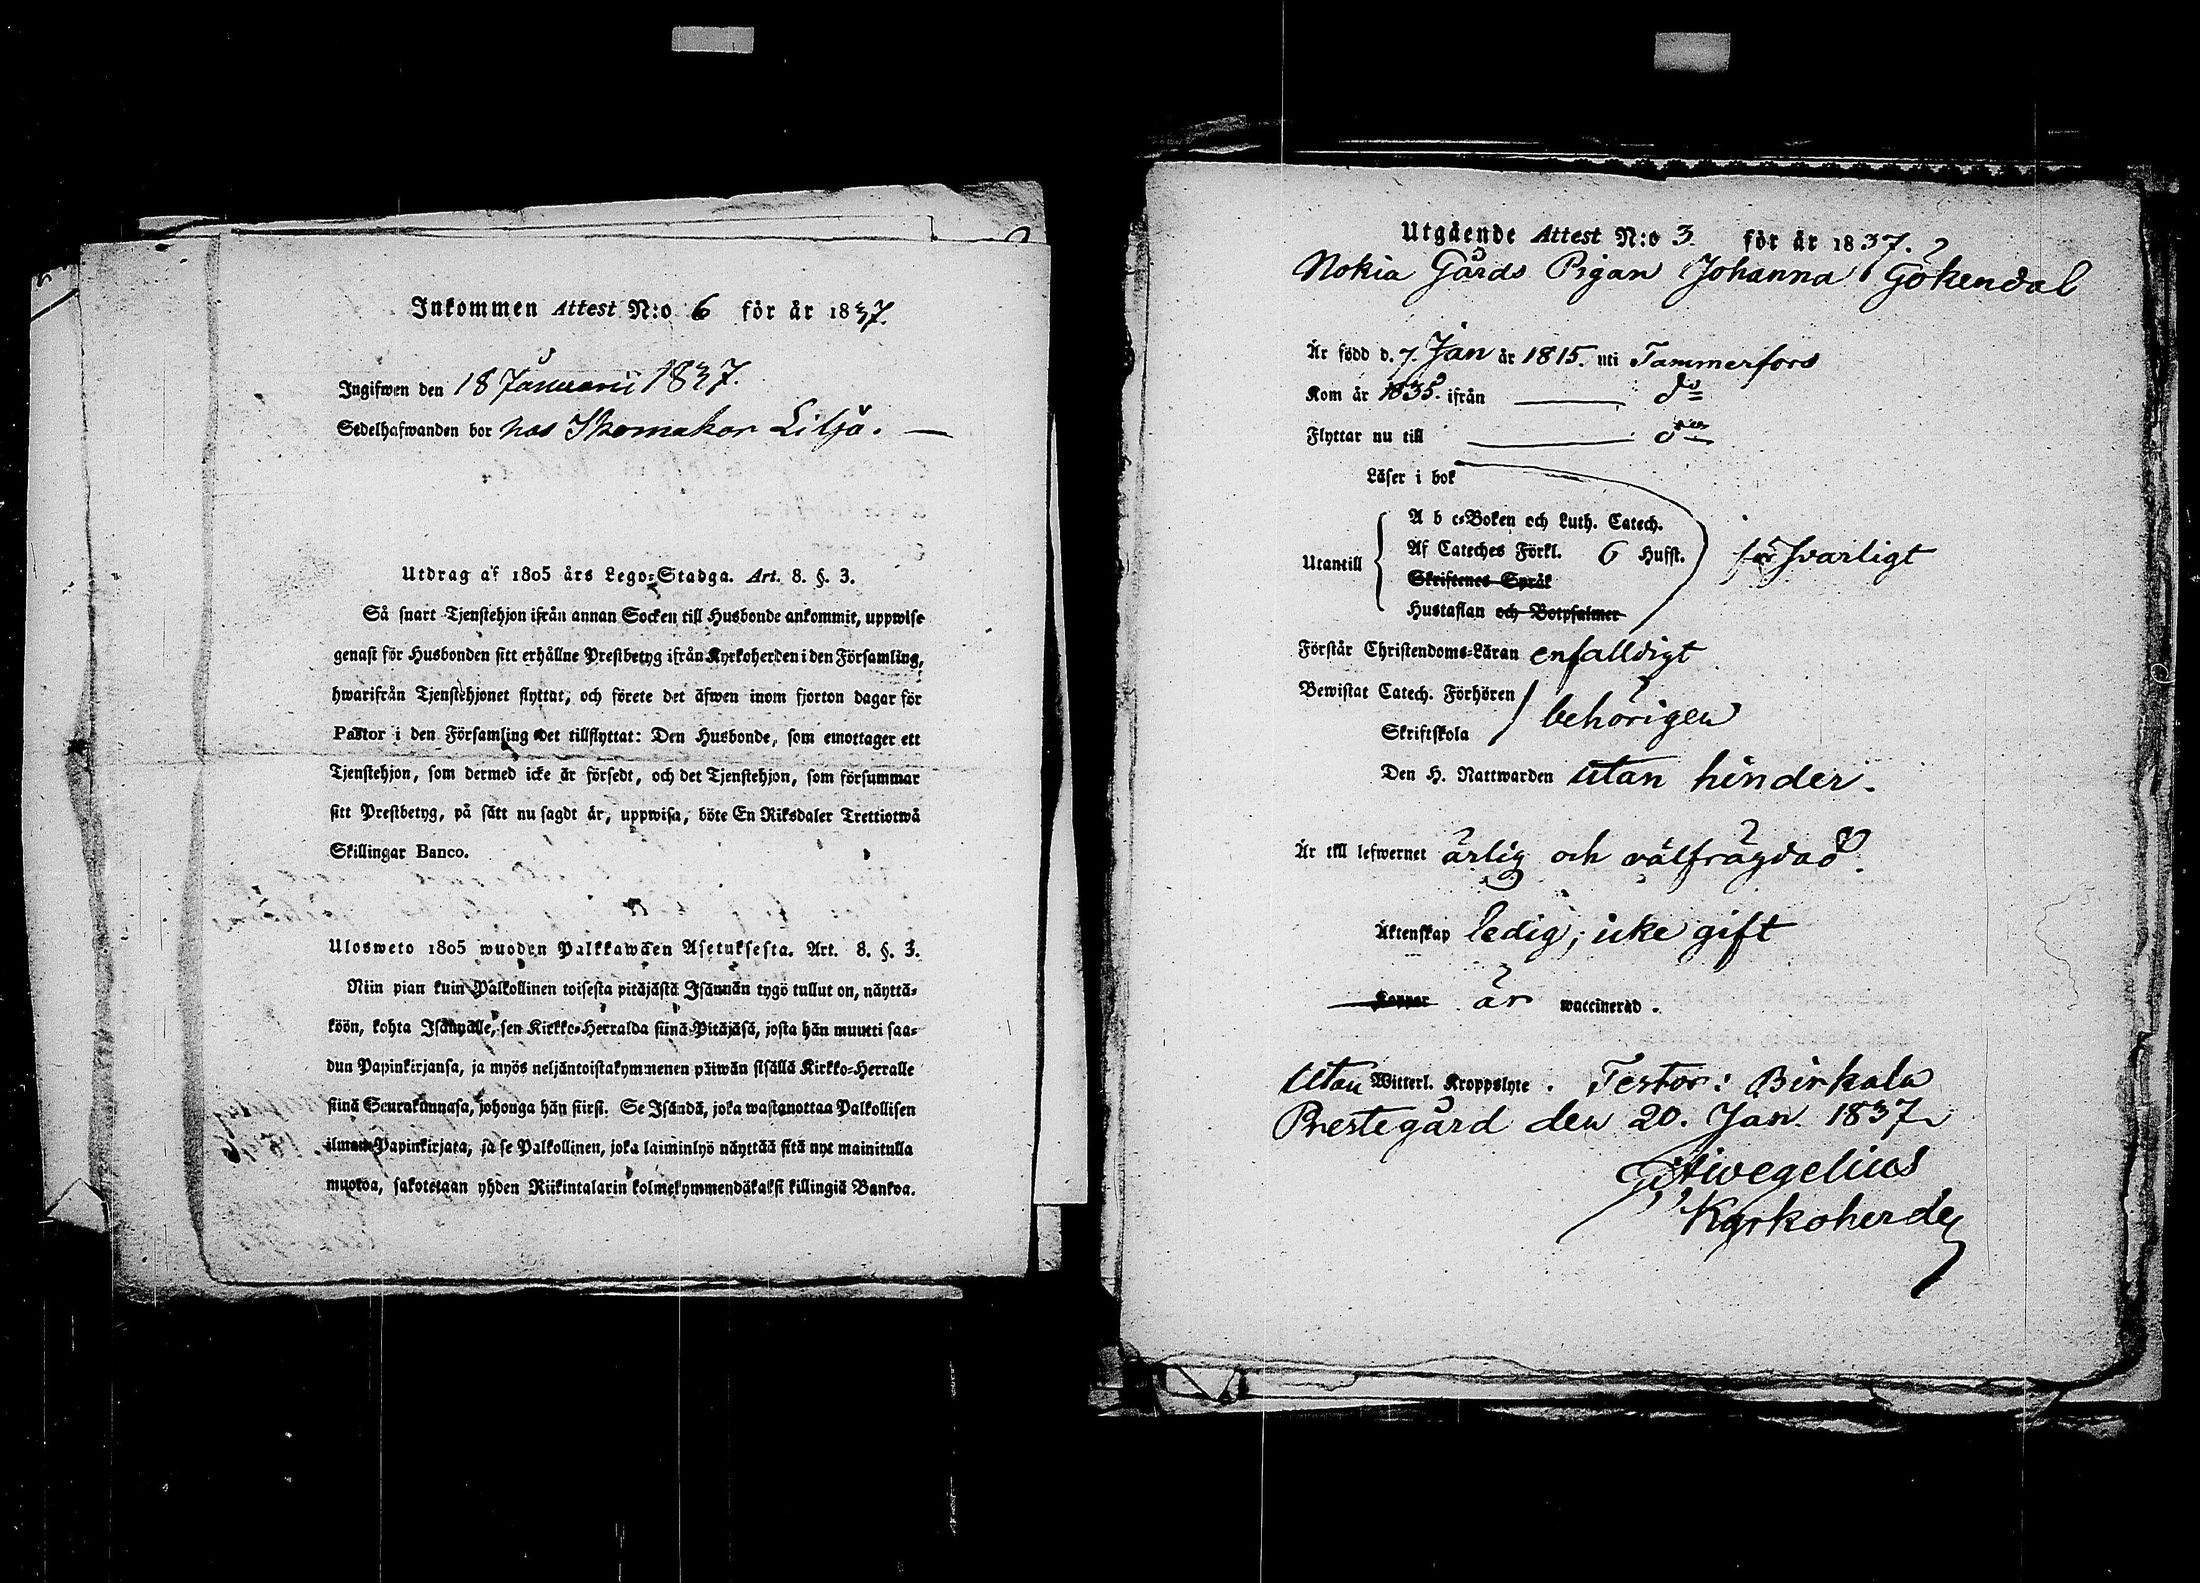 Inkommen Attest N:o 6 för år 1837.
Ingifwen den 18 Januarii 1837.
Sedelhafwanden bor hos Skomakar Lilja. —
Utdrag af 1805 års Lego-Stadga. Art. 8. §. 3.
Så snart Tjenstehjon ifrån annan Socken till Husbonde ankommit, uppwise
genast för Husbonden sitt erhållne Prestbetyg ifrån Kyrkoherden i den Församling,
hwarifrån Tjenstehjonet flyttat, och förete det äfwen inom fjorton dagar för
Pastor i den Församling det tillflyttat: Den Husbonde, som emottager ett
Tjenstehjon, som dermed icke är försedt, och det Tjenstehjon, som försummar
sitt Prestbetyg, på sätt nu sagdt är, uppwisa, böte En Riksdaler Trettiotwå
Skillingar Banco.
Ulosweto 1805 wuoden Palkkawäen Asetuksesta. Art. 8. §. 3.
Niin pian kuin Palkollinen toisesta pitäjästä Isännän tygö tullut on, näyttä-
köön, kohta Isännälle, sen Kirkko-Herralda siinä Pitäjäsä, josta hän muutti saa-
dun Papinkirjansa, ja myös neljäntoistakymmenen päiwän sisällä Kirkko-Herralle
siinä Seurakunnasa, johonga hän siirsi. Se Isändä, joka wastanottaa Palkollisen
ilman Papinkirjata, ja se Palkollinen, joka laiminlyö näyttää sitä nyt mainitulla
muotoa, sakotetaan yhden Riikintalarin kolmekymmendäkaksi killingiä Bankoa.
Utgående Attest N:o 3 för år 1837.
Nokia Gårds Pigan Johanna Gökendal
Är född d. 7. Jan år 1815. uti Tammerfors
Kom år 1835. ifrån — do
Flyttar nu till — do
Läser i bok
A b c-Boken och Luth. Catech.
Utantill Af Cateches Förkl. 6 Hufst. försvarligt
Skriftenes Språk
Hustaflan och Botpsalmer
Förstår Christendoms-Läran enfalldigt
Bewistat Catech. Förhören
behörigen
Skriftskola
Den H. Nattwarden utan hinder.
Är till lefwernet ärlig och välfrägdad.
Äktenskap ledig; icke gift
Koppor är waccinerad.
Utan Witterl. Kroppslyte. Testor: Birkala
Prestegård den 20. Jan. 1837
Aiwegelius
Kyrkoherde